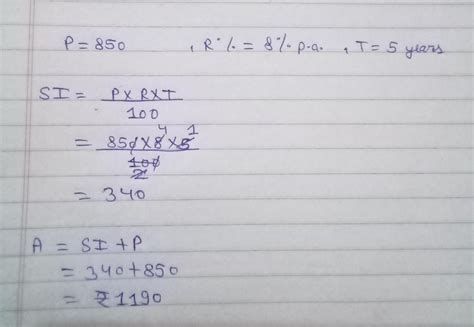 P = 850 , R % = 8 % p.a. , T = 5 years
SI = P X R X T
100
= 850 X 8 X 5
4 1
100
2
= 340
A = SI + P
= 340 + 850
= ₹ 1190